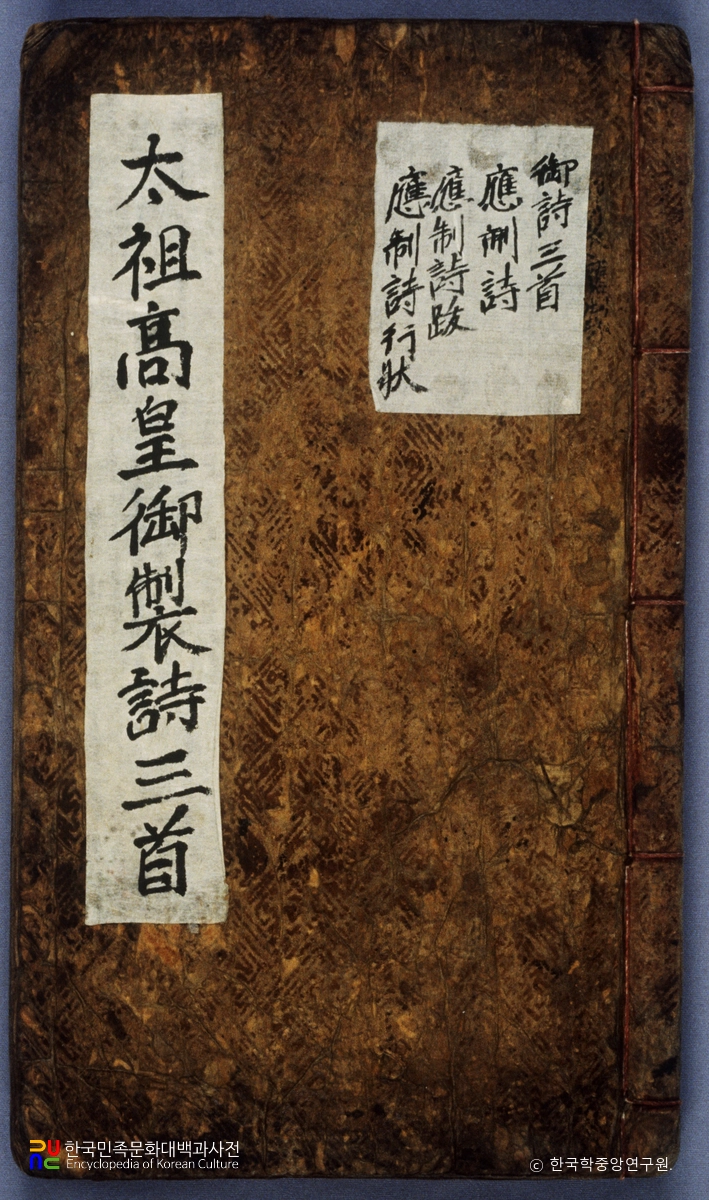 御詩三首
應制詩
應制詩跋
應制詩行狀
太祖高皇御製詩三首
한국민족문화대백과사전
Encyclopedia of Korean Culture
© 한국학중앙연구원.